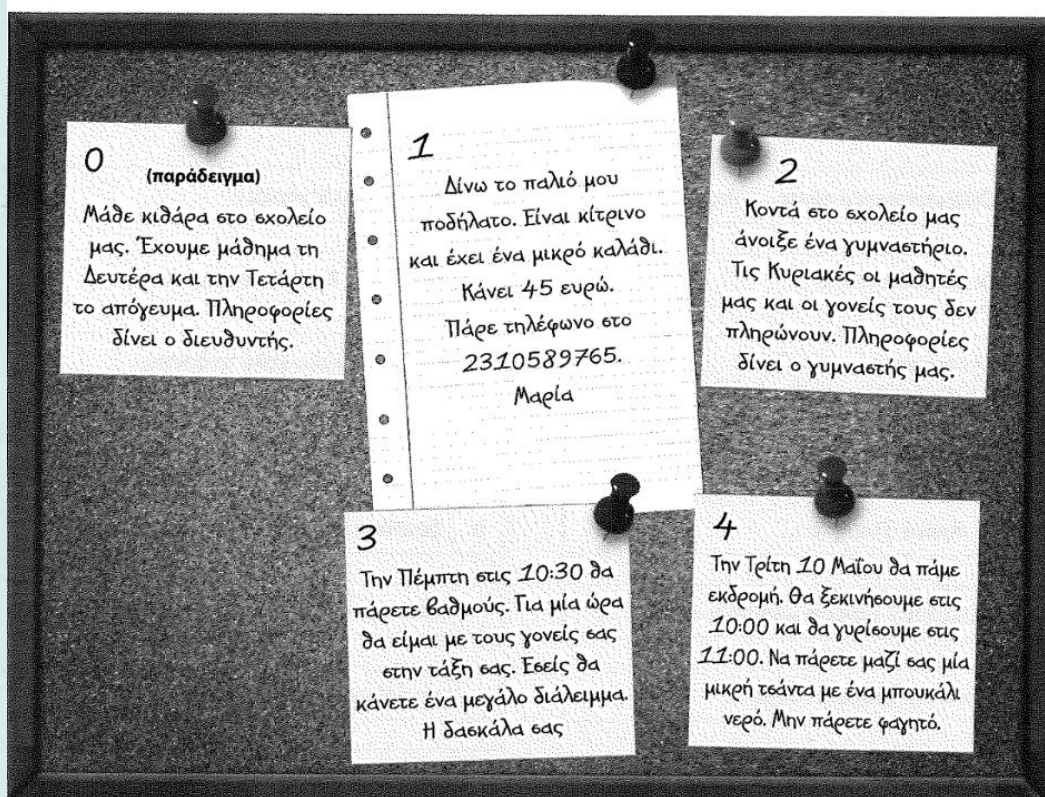 0
(παράδειγμα)
Μάθε κιθάρα στο σχολείο
μας. Έχουμε μάθημα τη
Δευτέρα και την Τετάρτη
το απόγευμα. Πληροφορίες
δίνει ο διευθυντής.
1
Δίνω το παλιό μου
ποδήλατο. Είναι κίτρινο
και έχει ένα μικρό καλάθι.
Κάνει 45 ευρώ.
Πάρε τηλέφωνο στο
2310589765.
Μαρία
2
Κοντά στο σχολείο μας
άνοιξε ένα γυμναστήριο.
Τις Κυριακές οι μαθητές
μας και οι γονείς τους δεν
πληρώνουν. Πληροφορίες
δίνει ο γυμναστής μας.
3
Την Πέμπτη στις 10:30 θα
πάρετε βαθμούς. Για μία ώρα
θα είμαι με τους γονείς σας
στην τάξη σας. Εσείς θα
κάνετε ένα μεγάλο διάλειμμα.
Η δασκάλα σας
4
Την Τρίτη 10 Μαΐου θα πάμε
εκδρομή. Θα ξεκινήσουμε στις
10:00 και θα γυρίσουμε στις
11:00. Να πάρετε μαζί σας μία
μικρή τσάντα με ένα μπουκάλι
νερό. Μην πάρετε φαγητό.